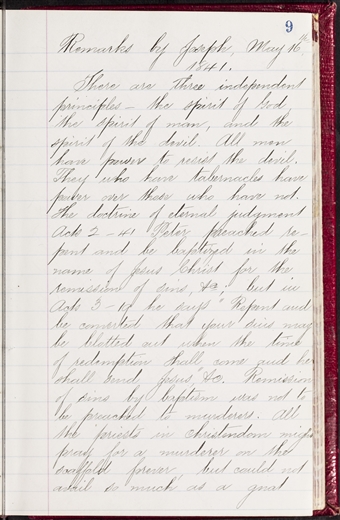 9
Remarks by Joseph, May 16th
1841.
There are three independent
principles — the spirit of God,
the spirit of man, and the
spirit of the devil. All men
have power to resist the devil.
They who have tabernacles have
power over those who have not.
The doctrine of eternal judgment
Acts 2 - 41 Peter preached re-
pent and be baptized in the
name of Jesus Christ for the
remission of sins, &c; but in
Acts 3 - 19 he says "Repent and
be converted that your sins may
be blotted out when the time
of redemption shall come and he
shall send Jesus, &c. Remission
of sins by baptism was not to
be preached to murderers. All
the priests in christendom might
pray for a murderer on the
scaffold forever, but could not
avail so much as a gnat